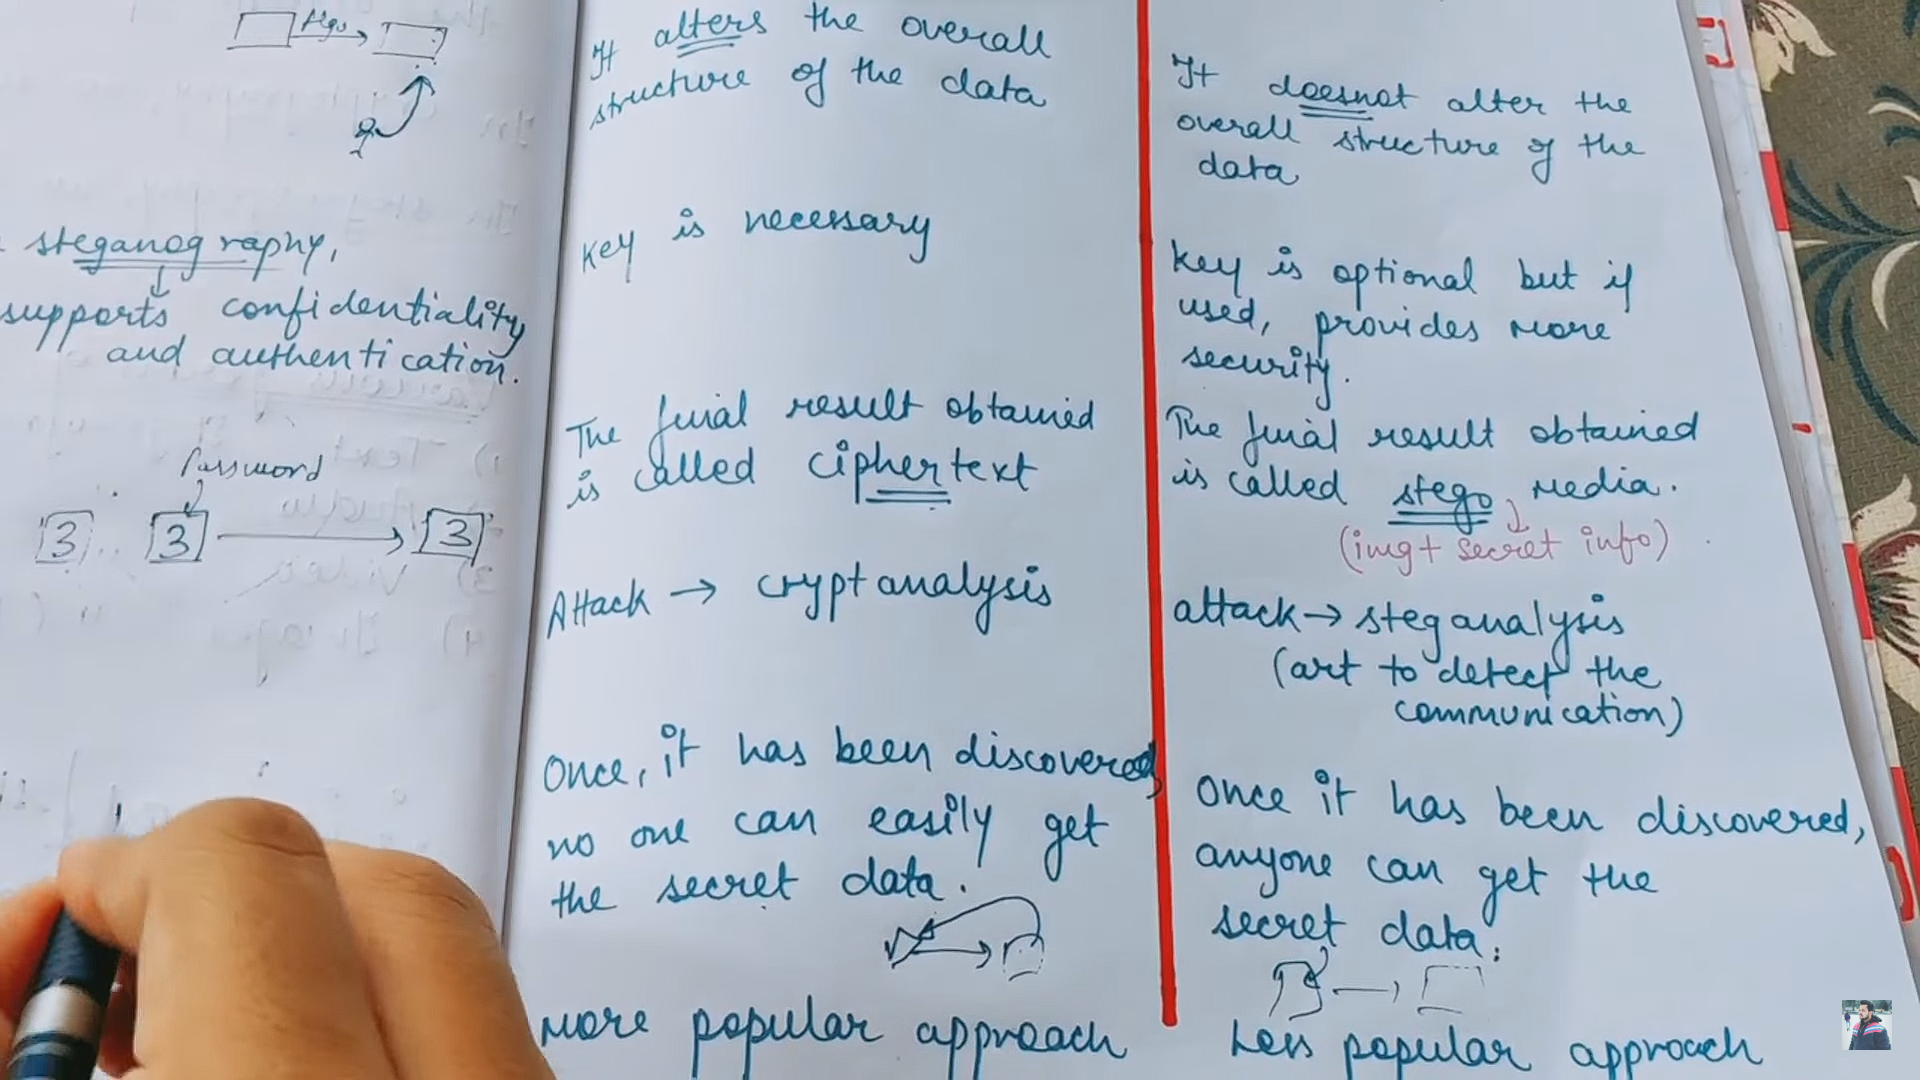 Algo
steganography,
supports confidentiality
and authentication.
Password
3 .. 3 3
It alters the overall
structure of the data
Key is necessary
The final result obtained
is called ciphertext
Attack → cryptanalysis
Once, it has been discovered,
no one can easily get
the secret data.
More popular approach
It doesnot alter the
overall structure of the
data
Key is optional but if
used, provides more
security.
The final result obtained
is called stego media.
(img + secret info)
attack → steganalysis
(art to detect the
communication)
Once it has been discovered,
anyone can get the
secret data.
Less popular approach